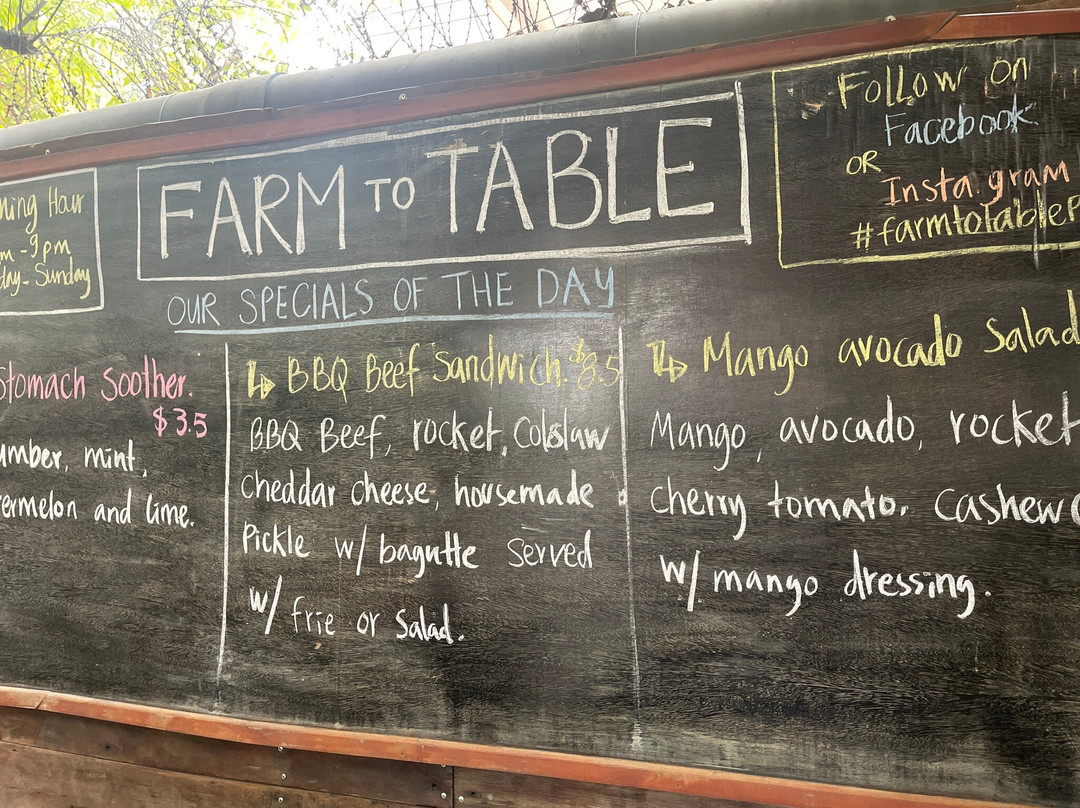 FARM TO TABLE
OUR SPECIALS OF THE DAY
ning Hour.
m - 9 pm
day - Sunday
Follow on
Facebook.
OR
Insta.gram
#farmtotableP
Stomach Soother.
$3.5
umber, mint,
ermelon and lime.
BBQ Beef Sandwich. $8.5
BBQ Beef, rocket, Colslaw
cheddar cheese, housemade
Pickle w/ bagutte served
w/ frie or salad.
Mango avocado Salad
Mango, avocado, rocket
cherry tomato. Cashew
w/ mango dressing.